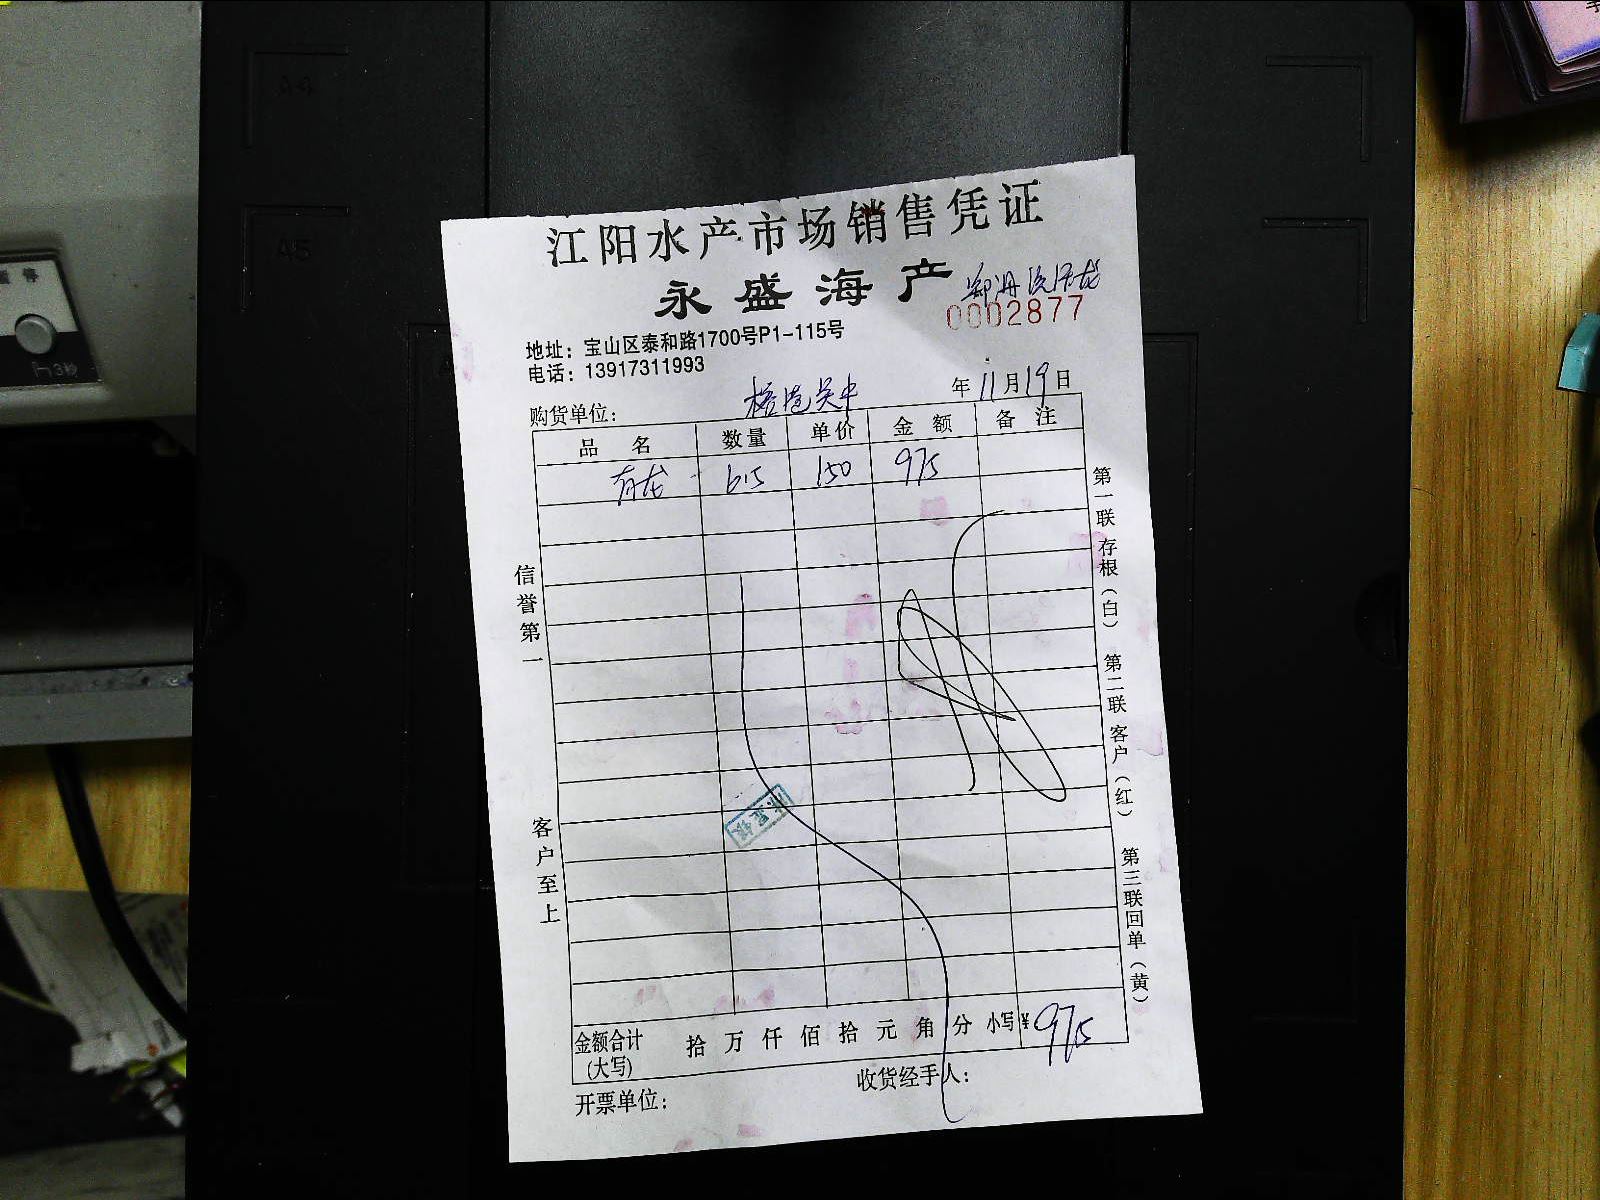 江阳水产市场销售凭证
永盛海产
0002877
地址：宝山区泰和路1700号P1-115号
电话：13917311993
年11月19日
购货单位：
品名 数量 单价 金额 备注
青龙 6.5 150 975
信誉第一
客户至上
第一联存根（白）
第二联客户（红）
第三联回单（黄）
金额合计（大写） 拾 万 仟 佰 拾 元 角 分 小写¥975
收货经手人：
开票单位：
A5
3秒